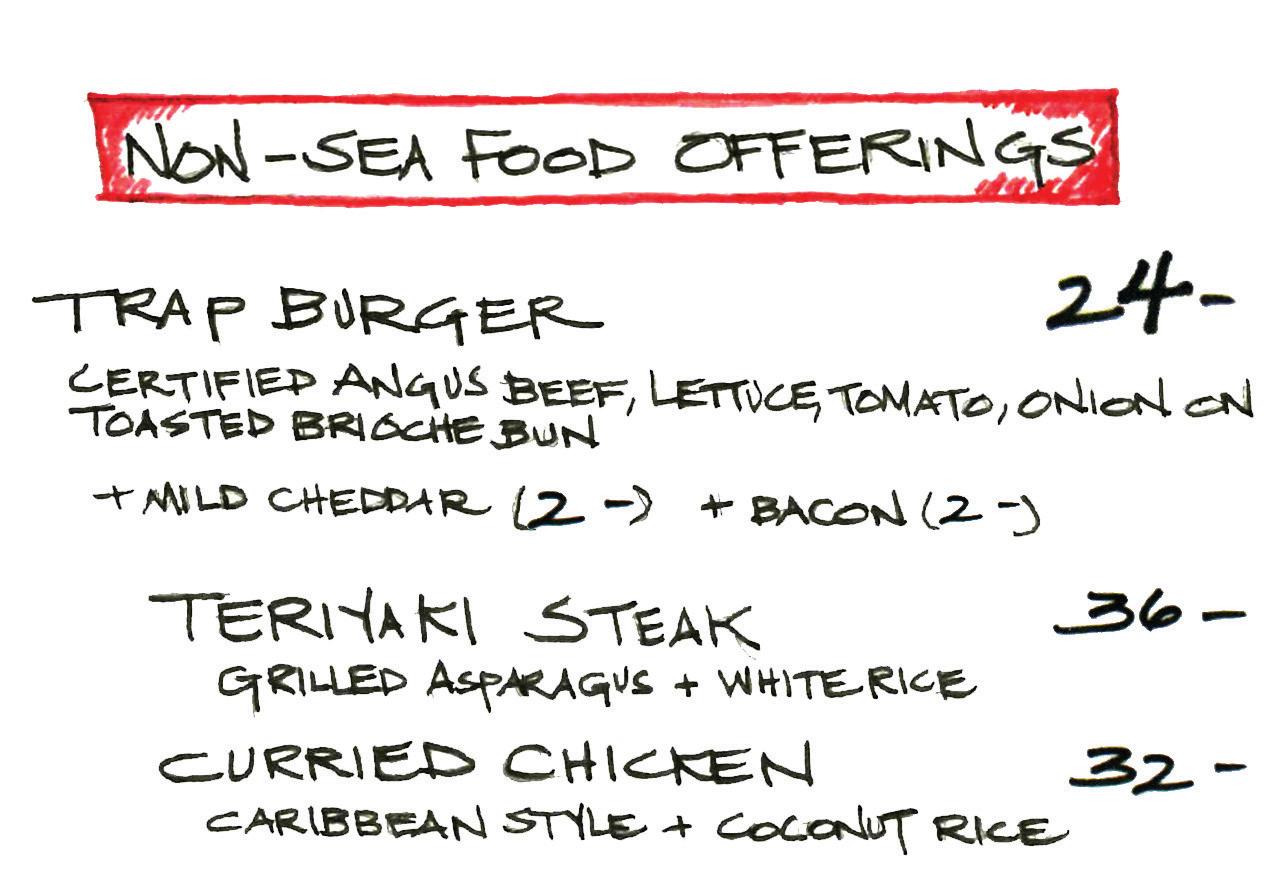 NON-SEA FOOD OFFERINGS
TRAP BURGER 24-
CERTIFIED ANGUS BEEF, LETTUCE, TOMATO, ONION ON
TOASTED BRIOCHE BUN
+ MILD CHEDDAR (2 -) + BACON (2 -)
TERIYAKI STEAK 36 -
GRILLED ASPARAGUS + WHITE RICE
CURRIED CHICKEN 32 -
CARIBBEAN STYLE + COCONUT RICE